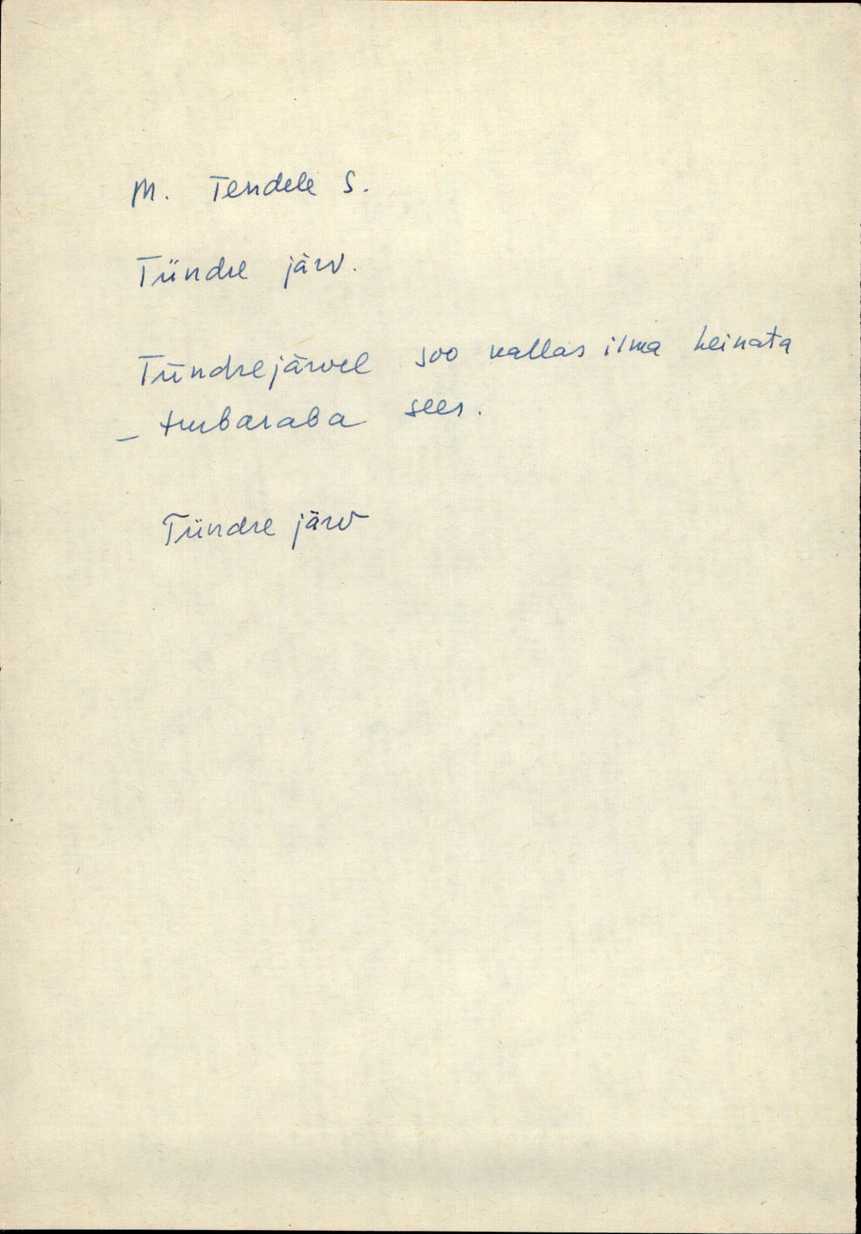 M. Tendele S.
Tündre järv.
Tündrejärvel soo kallas ilma heinata
– turbaraba sees.
Tündre järv